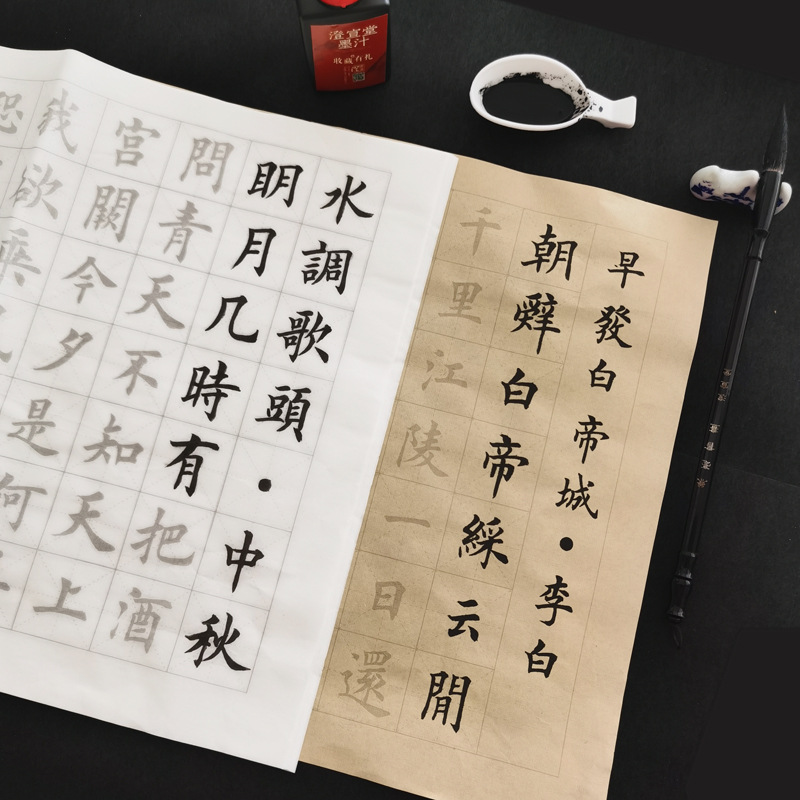 澄宣堂
墨汁
收藏有礼
早發白帝城·李白
朝辭白帝綵云閒
千里江陵一日還
水調歌頭·中秋
明月几時有把酒
問青天不知天上
宮闕今夕是何
我欲乘